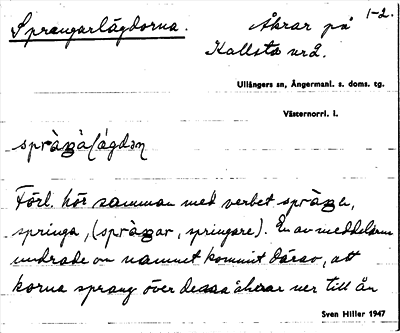 Sprangarlägdorna. Åkrar på 1-2.
Kallsta nr 2.
Ullångers sn, Ångermanl. s. doms. tg.
Västernorrl. l.
Förl. hör samman med verbet
springa, springare). En av meddelarna
undrade om namnet kommit därav, att
korna sprang över dessa åkrar ner till ån
Sven Hiller 1947